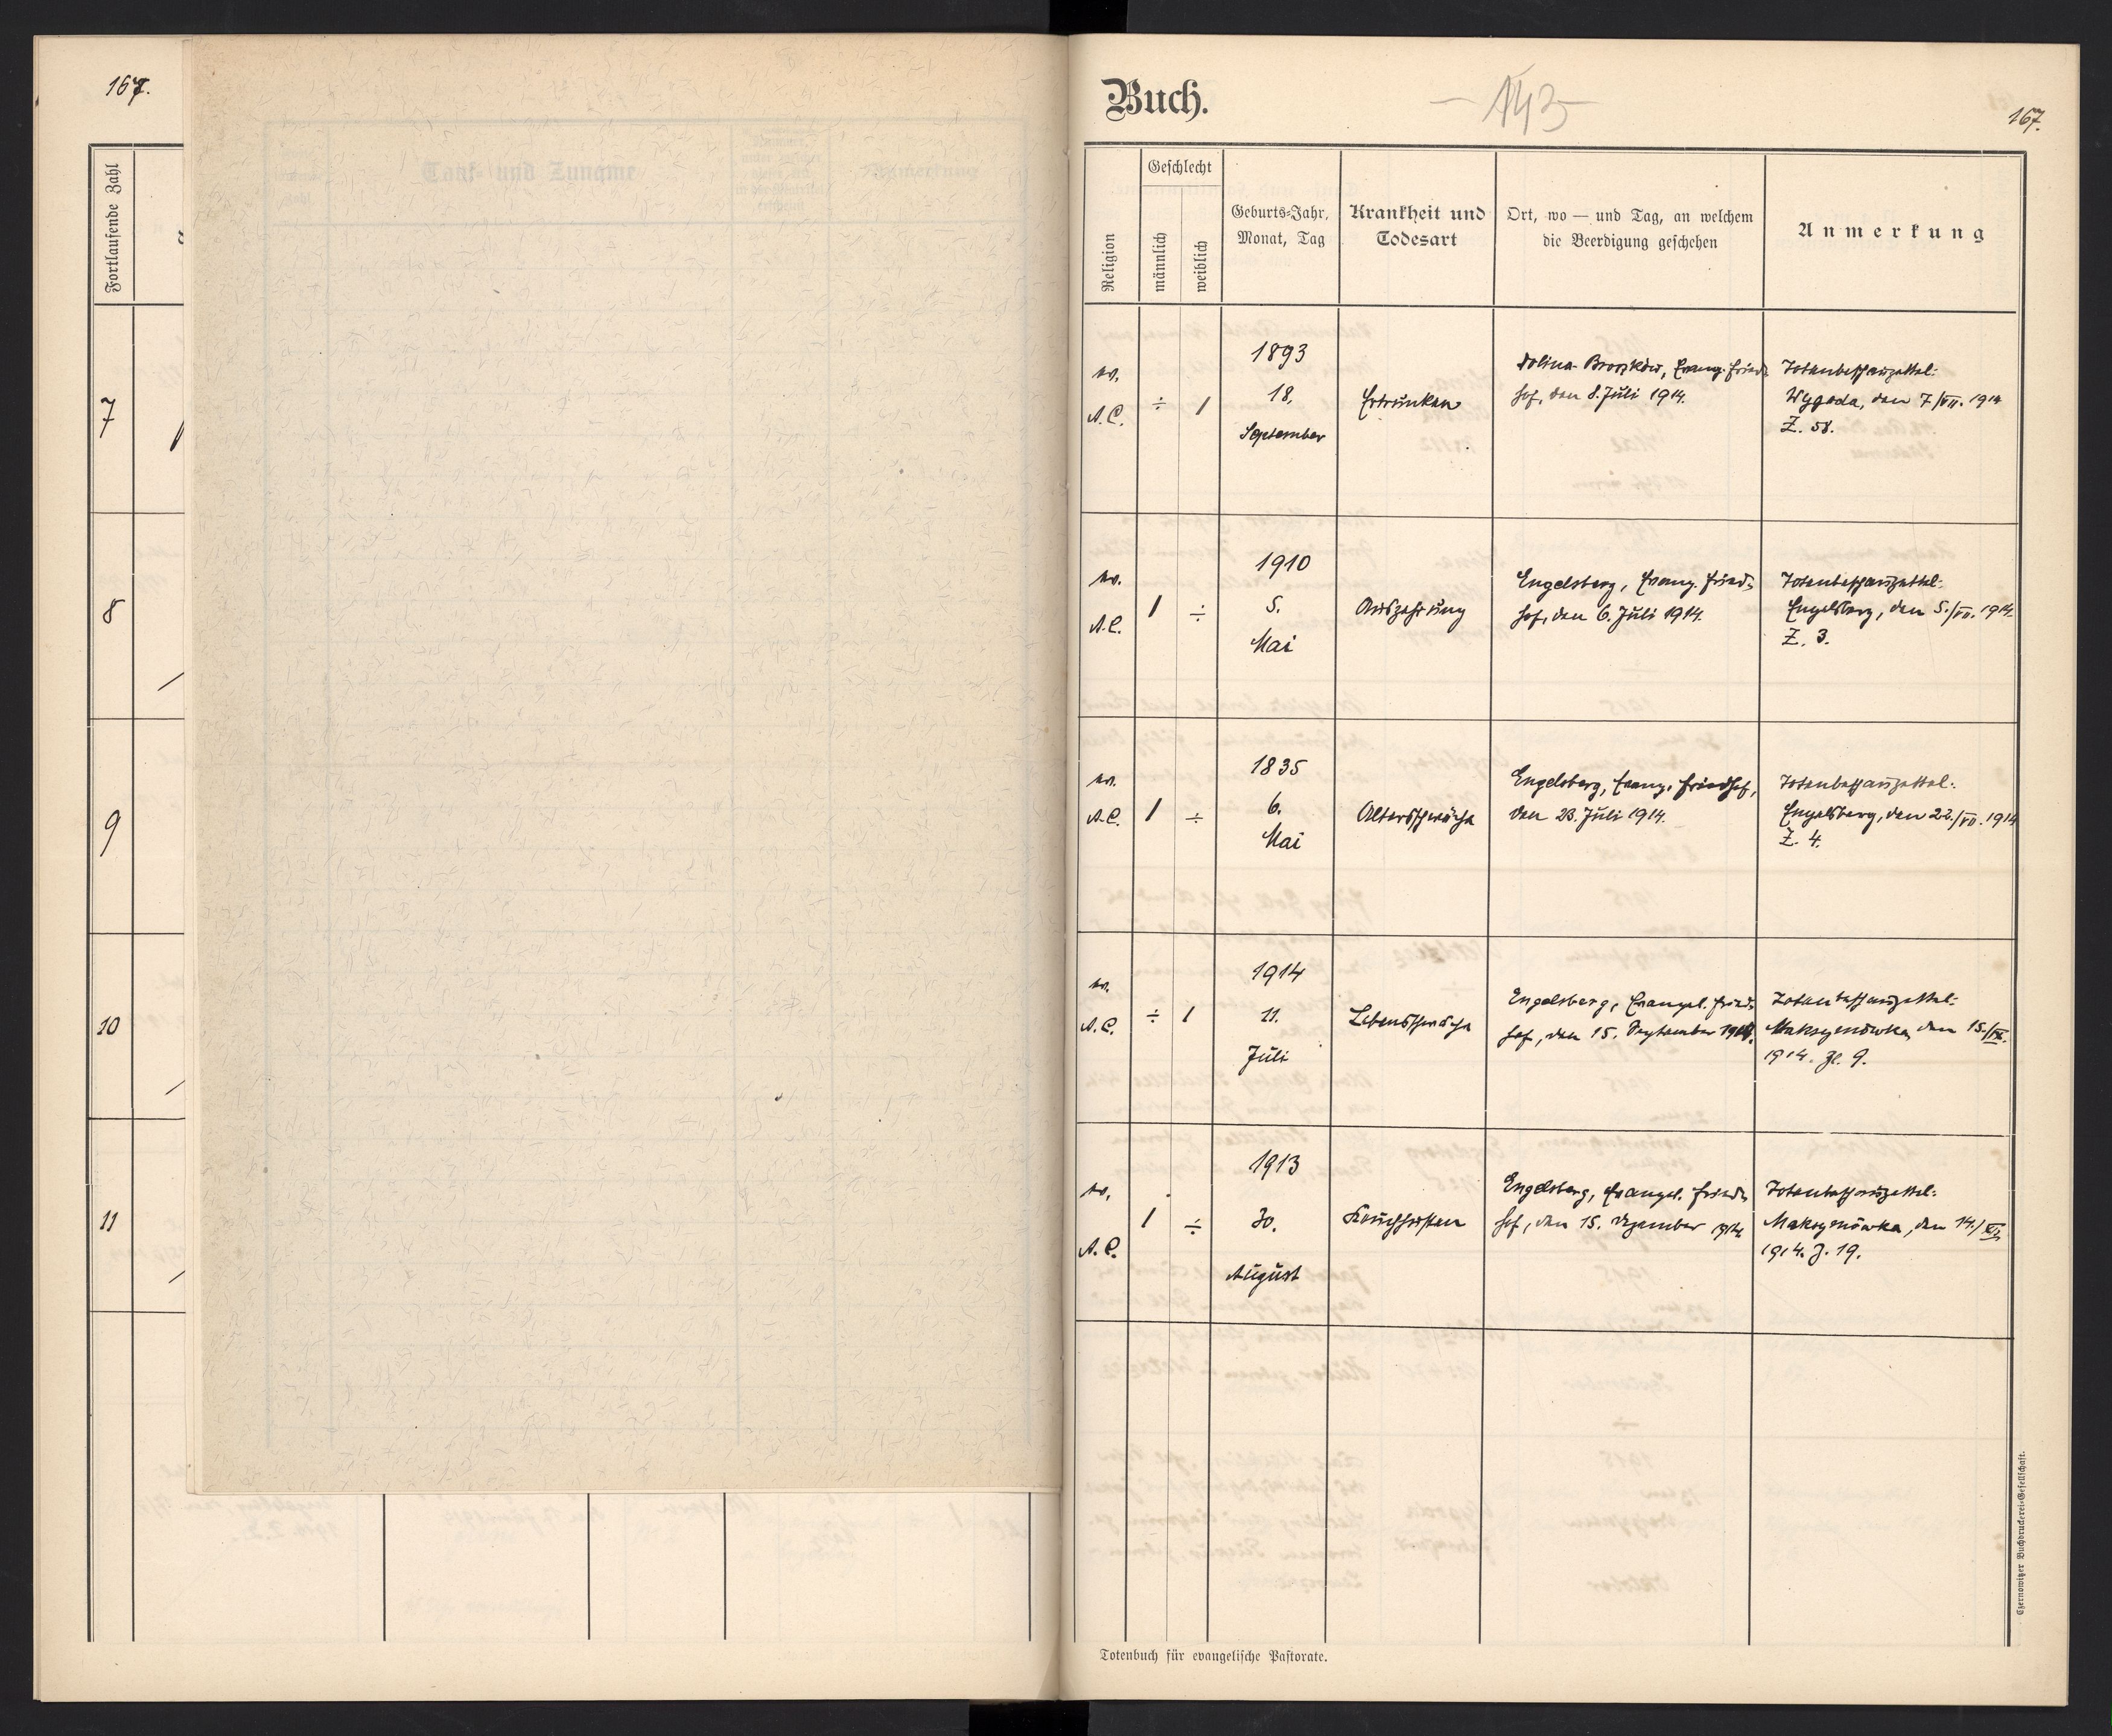 167.
Fortlaufende Zahl
7
8
9
10
11
Tauf- und Zuname
Anmerkung
Buch.
- 143 -
167.
Religion
Geschlecht
männlich
weiblich
Geburts-Jahr,
Monat, Tag
Krankheit und
Todesart
Ort, wo — und Tag, an welchem
die Beerdigung geschehen
Anmerkung
ev.
A.C.
÷
1
1893
18.
September
Ertrunken
Dolina-Broszków, Evang. Fried-
hof, den 8. Juli 1914.
Totenbeschauzettel:
Wygoda, den 7/VII. 1914
Z. 58.
ev.
A.C.
1
÷
1910
5.
Mai
Auszehrung
Engelsberg, Evang. Fried-
hof, den 6. Juli 1914.
Totenbeschauzettel:
Engelsberg, den 5./VII. 1914.
Z. 3.
ev.
A.C.
1
÷
1835
6.
Mai
Altersschwäche
Engelsberg, Evang. Friedhof,
den 23. Juli 1914.
Totenbeschauzettel:
Engelsberg, den 22./VII. 1914
Z. 4.
ev.
A.C.
÷
1
1914
11.
Juli
Lebensschwäche
Engelsberg, Evangel. Fried-
hof, den 15. September 1914.
Totenbeschauzettel:
Maksymówka, den 15./IX.
1914. Zl. 9.
ev.
A.C.
1
÷
1913
30.
August
Keuchhusten
Engelsberg, Evangel. Fried-
hof, den 15. Dezember 1914.
Totenbeschauzettel:
Maksymówka, den 14./XII.
1914. Z. 19.
Totenbuch für evangelische Pastorate.
Czernowitzer Buchdruckerei-Gesellschaft.